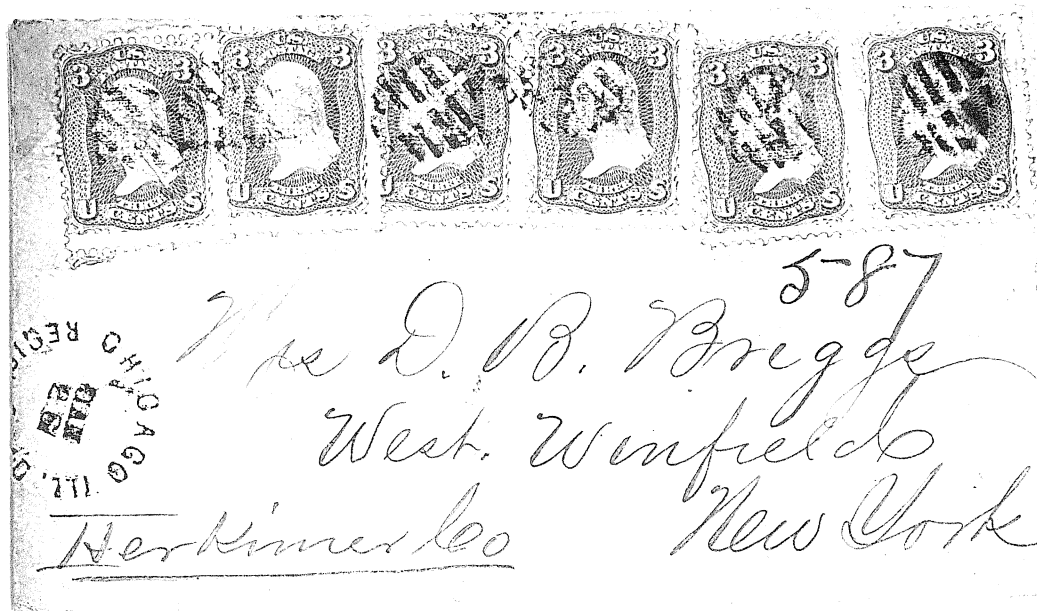 3 U.S. 3 U CENTS S
3 U.S. 3 U CENTS S
3 U.S. 3 U CENTS S
3 U.S. 3 U CENTS S
3 U.S. 3 U CENTS S
3 U.S. 3 U CENTS S
587
Mrs D. B. Briggs
West. Winfield
New York
Herkimer Co
CHICAGO ILL.
JAN
26